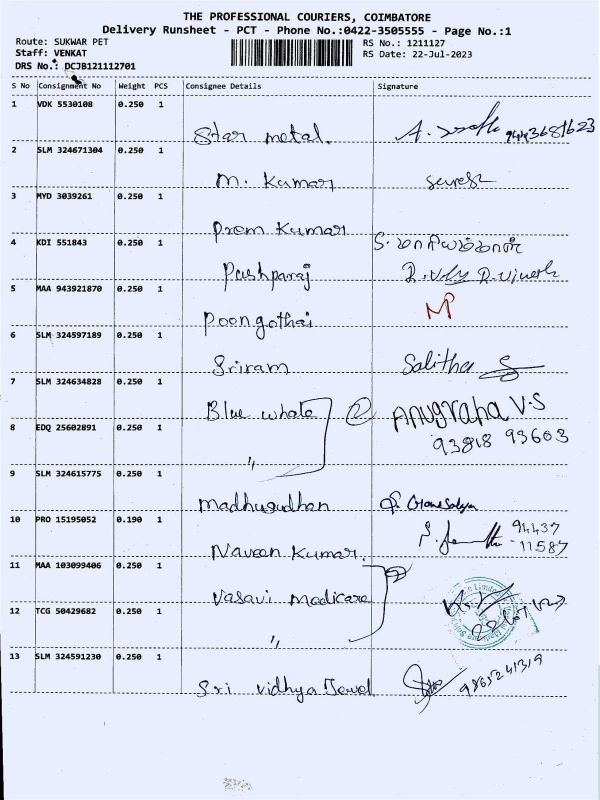 THE PROFESSIONAL COURIERS, COIMBATORE
Delivery Runsheet - PCT - Phone No.:0422-3505555 - Page No.:1
Route: SUKWAR PET
Staff: VENKAT
DRS No.: DCJB121112701
RS No.: 1211127
RS Date: 22-Jul-2023
S No Consignment No Weight PCS Consignee Details Signature
1 VDK 5530108 0.250 1
Star metal. 9443681623
2 SLM 324671304 0.250 1
M. Kumar Suresh
3 MYD 3039261 0.250 1
Prem Kumar S. மாரியம்மாள்
4 KDI 551843 0.250 1
Pushparaj
5 MAA 943921870 0.250 1
Poongothai
6 SLM 324597189 0.250 1
Sriram Salitha
7 SLM 324634828 0.250 1
Blue whale 2 Anugraha V.S
8 EDQ 25602891 0.250 1
" 93818 93603
9 SLM 324615775 0.250 1
Madhusudhan
10 PRO 15195052 0.190 1
Naveen Kumar. 94437
11587
11 MAA 103099406 0.250 1
Vasavi Medicare
12 TCG 50429682 0.250 1
"
13 SLM 324591230 0.250 1
Sri Vidhya Jewel 9865241319